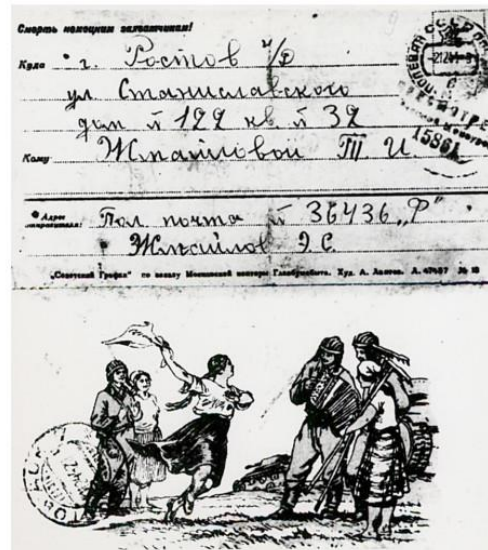 Смерть немецким захватчикам!
Куда г. Ростов н/Д
ул. Станиславского
дом № 122 кв. № 32
Кому Жмайловой Ш. И.
Адрес отправителя: Пол. почта № 36436 „Р"
Жмайлов Э. С.
„Советский График" по заказу Московской конторы Главбумсбыта. Худ. А. Лаптев. А. 47487 № 18
ПОЛЕВАЯ
15861